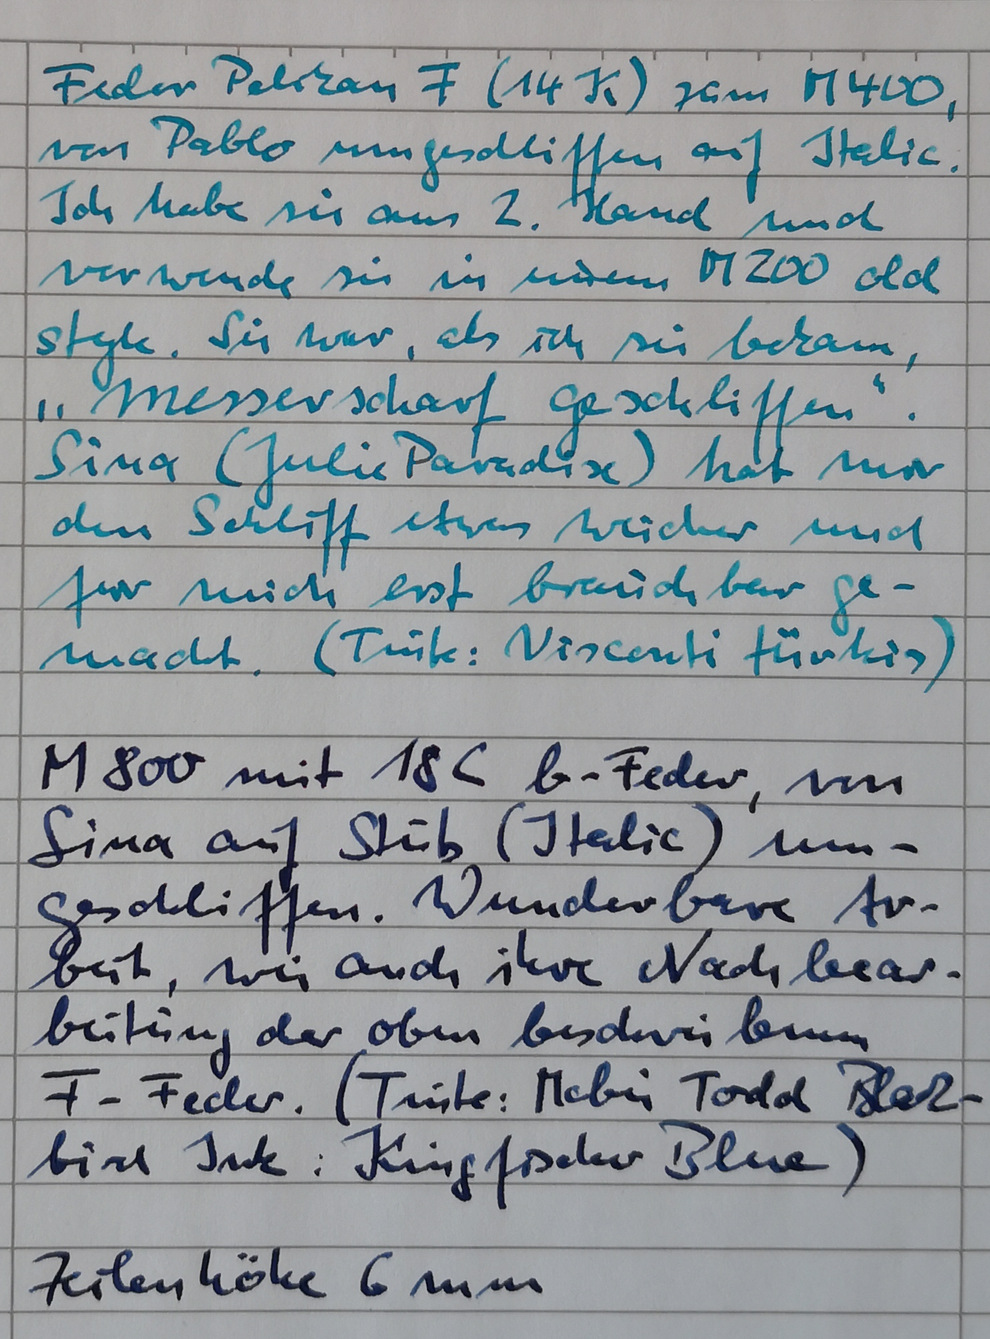 Feder Pelikan F (14 K) zum M400,
von Pablo umgeschliffen auf Italic.
Ich habe sie aus 2. Hand und
verwende sie in einem M200 old
style. Sie war, als ich sie bekam,
„messerscharf geschliffen“.
Sina (Julie Paradise) hat mir
den Schliff etwas weicher und
für mich erst brauchbar ge-
macht. (Tinte: Visconti türkis)
M800 mit 18C b-Feder, von
Sina auf Stub (Italic) um-
geschliffen. Wunderbare Ar-
beit, wie auch ihre Nachbear-
beitung der oben beschriebenen
F-Feder. (Tinte: Mabie Todd Black-
bird Ink: Kingfischer Blue)
Zeilenhöhe 6 mm